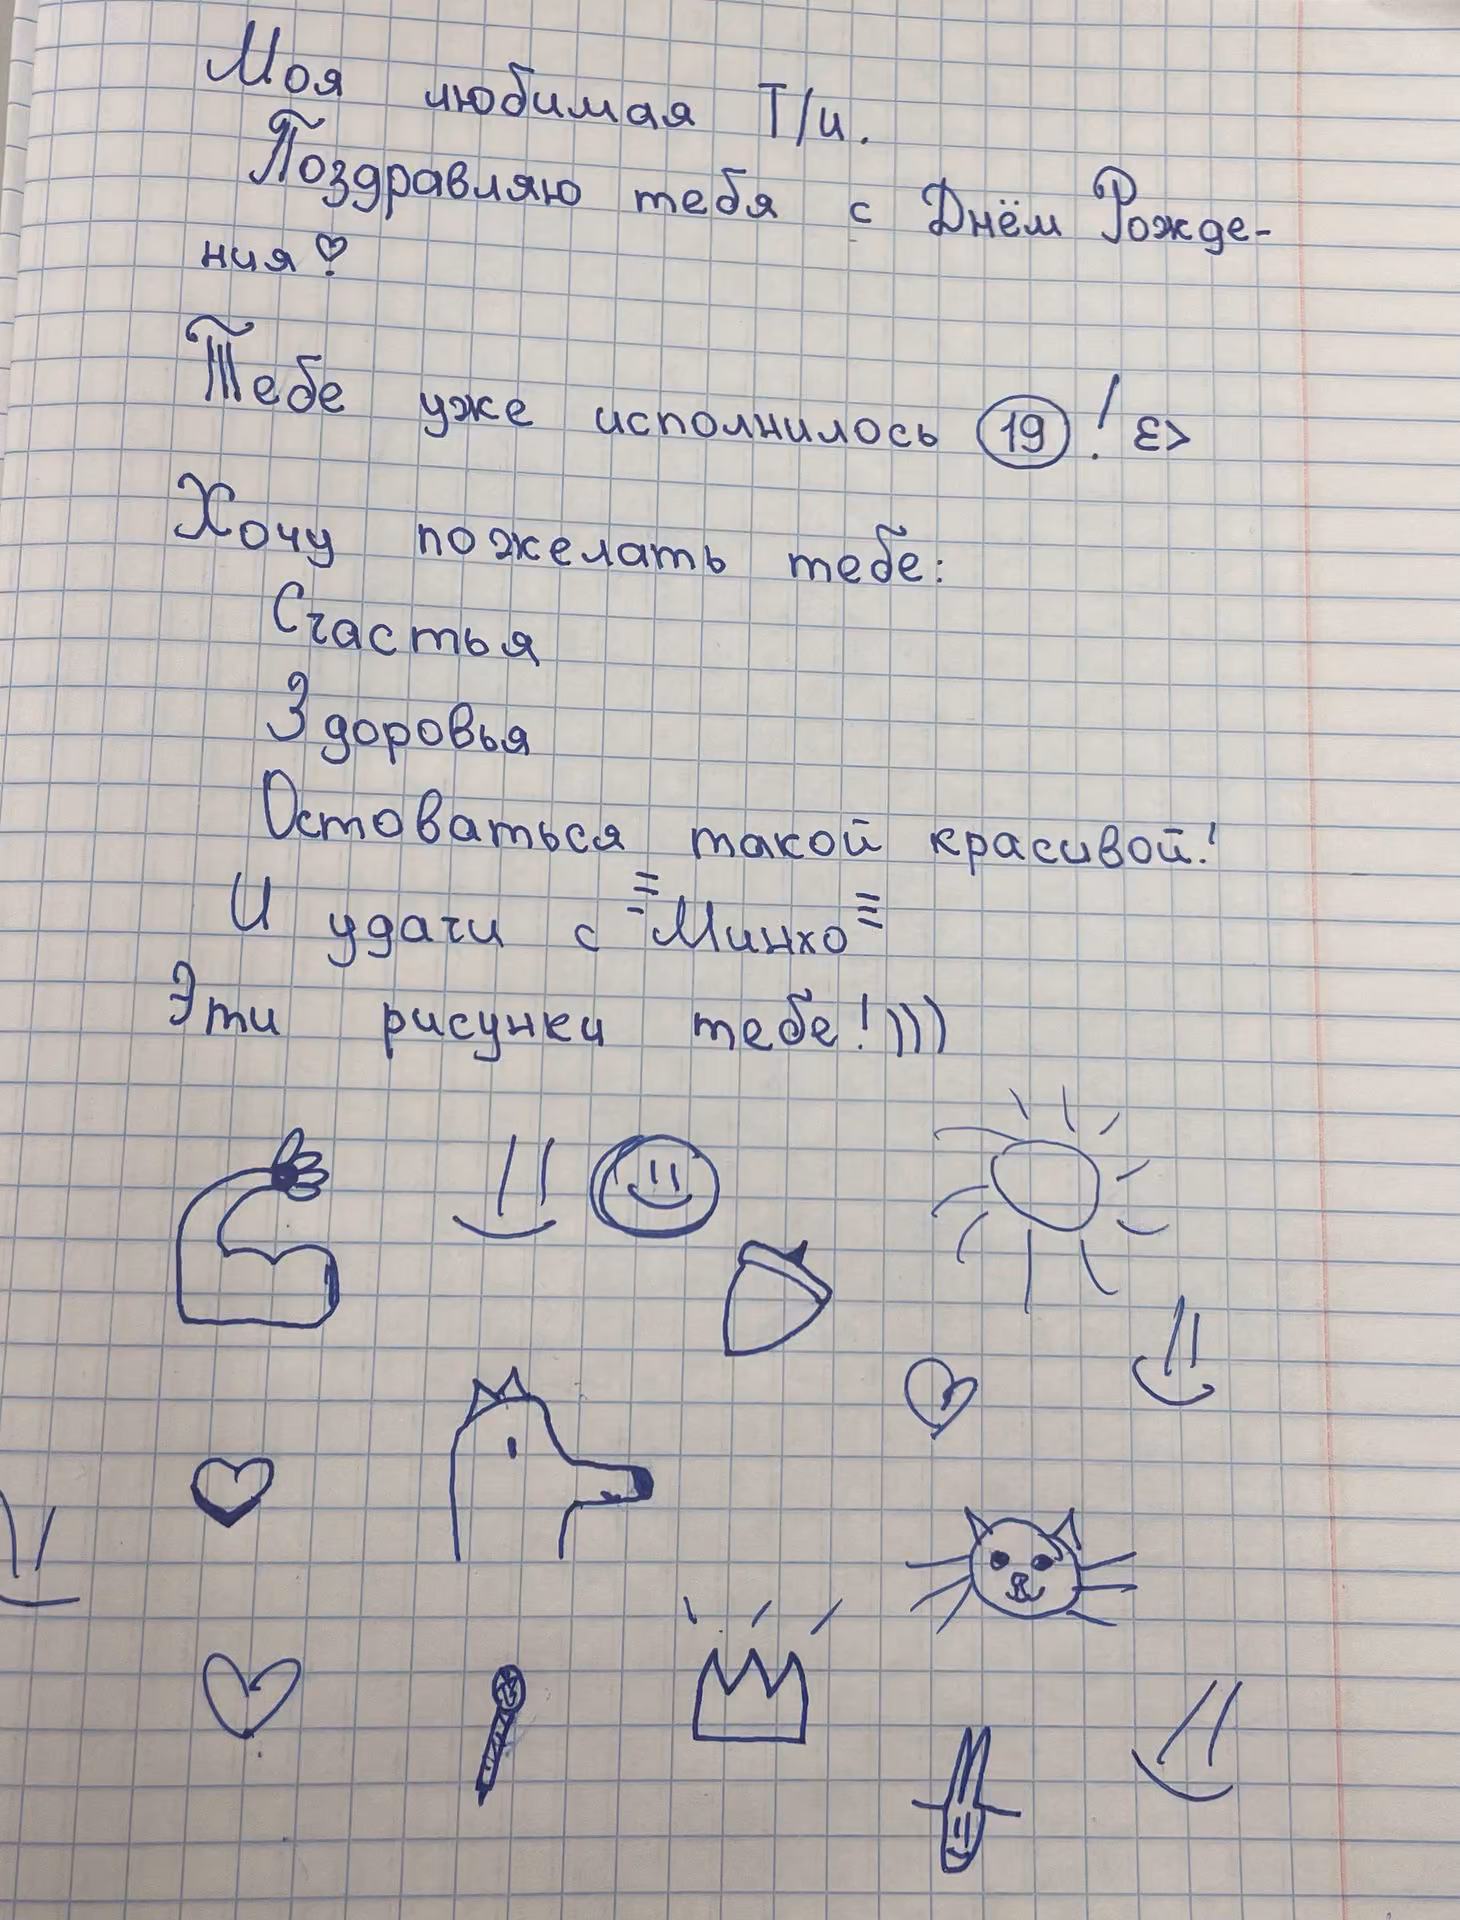 Моя любимая Т/и.
Поздравляю тебя с Днём Рожде-
ния♡
Тебе уже исполнилось 19! ε>
Хочу пожелать тебе:
Счастья
Здоровья
Остоваться такой красивой!
И удачи с Минхо
Эти рисунки тебе!)))